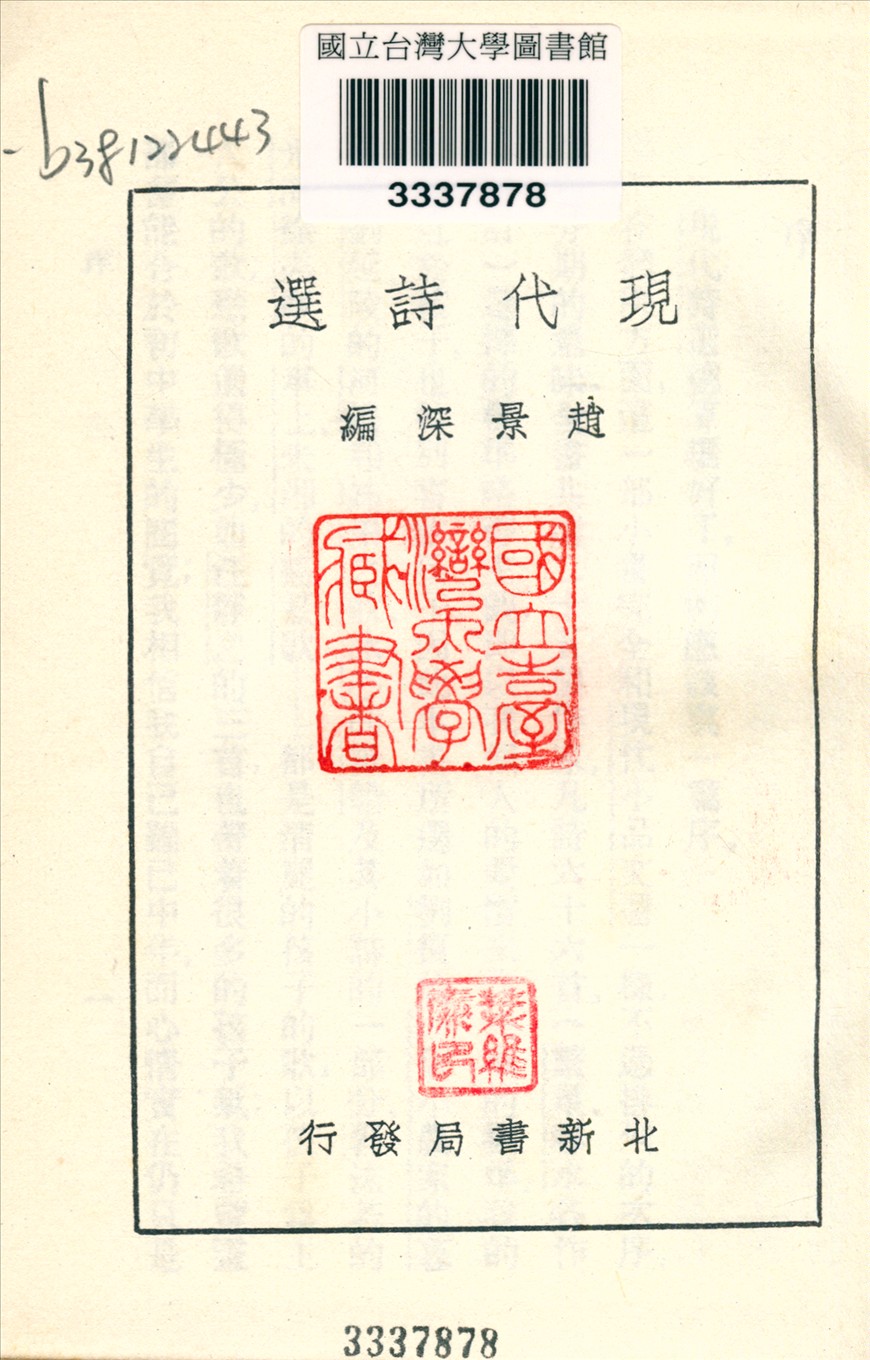 國立台灣大學圖書館
3337878
b38122443
現代詩選
趙景深編
國立臺
灣大學
藏書
北新書局發行
3337878